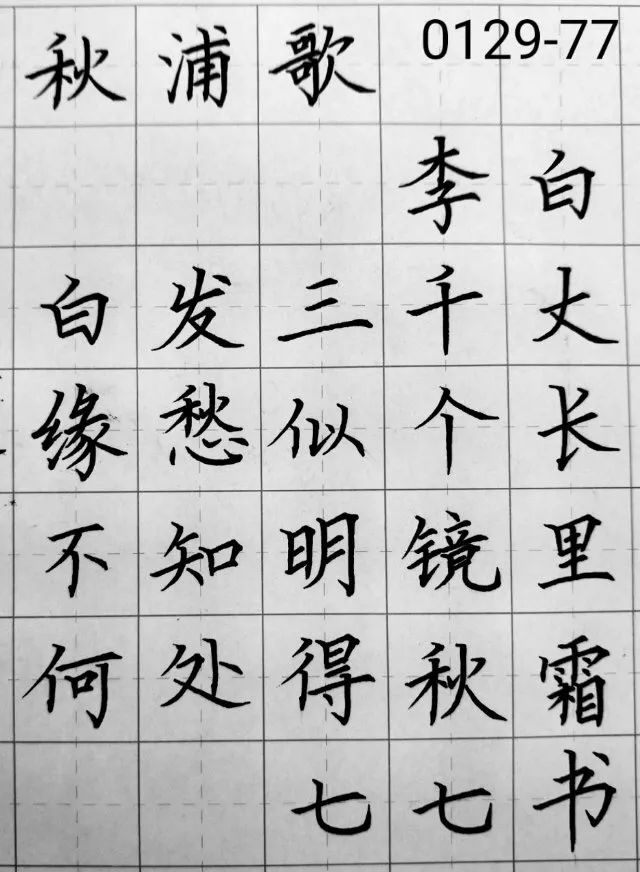 0129-77
秋浦歌
李白
白发三千丈
缘愁似个长
不知明镜里
何处得秋霜
七七书